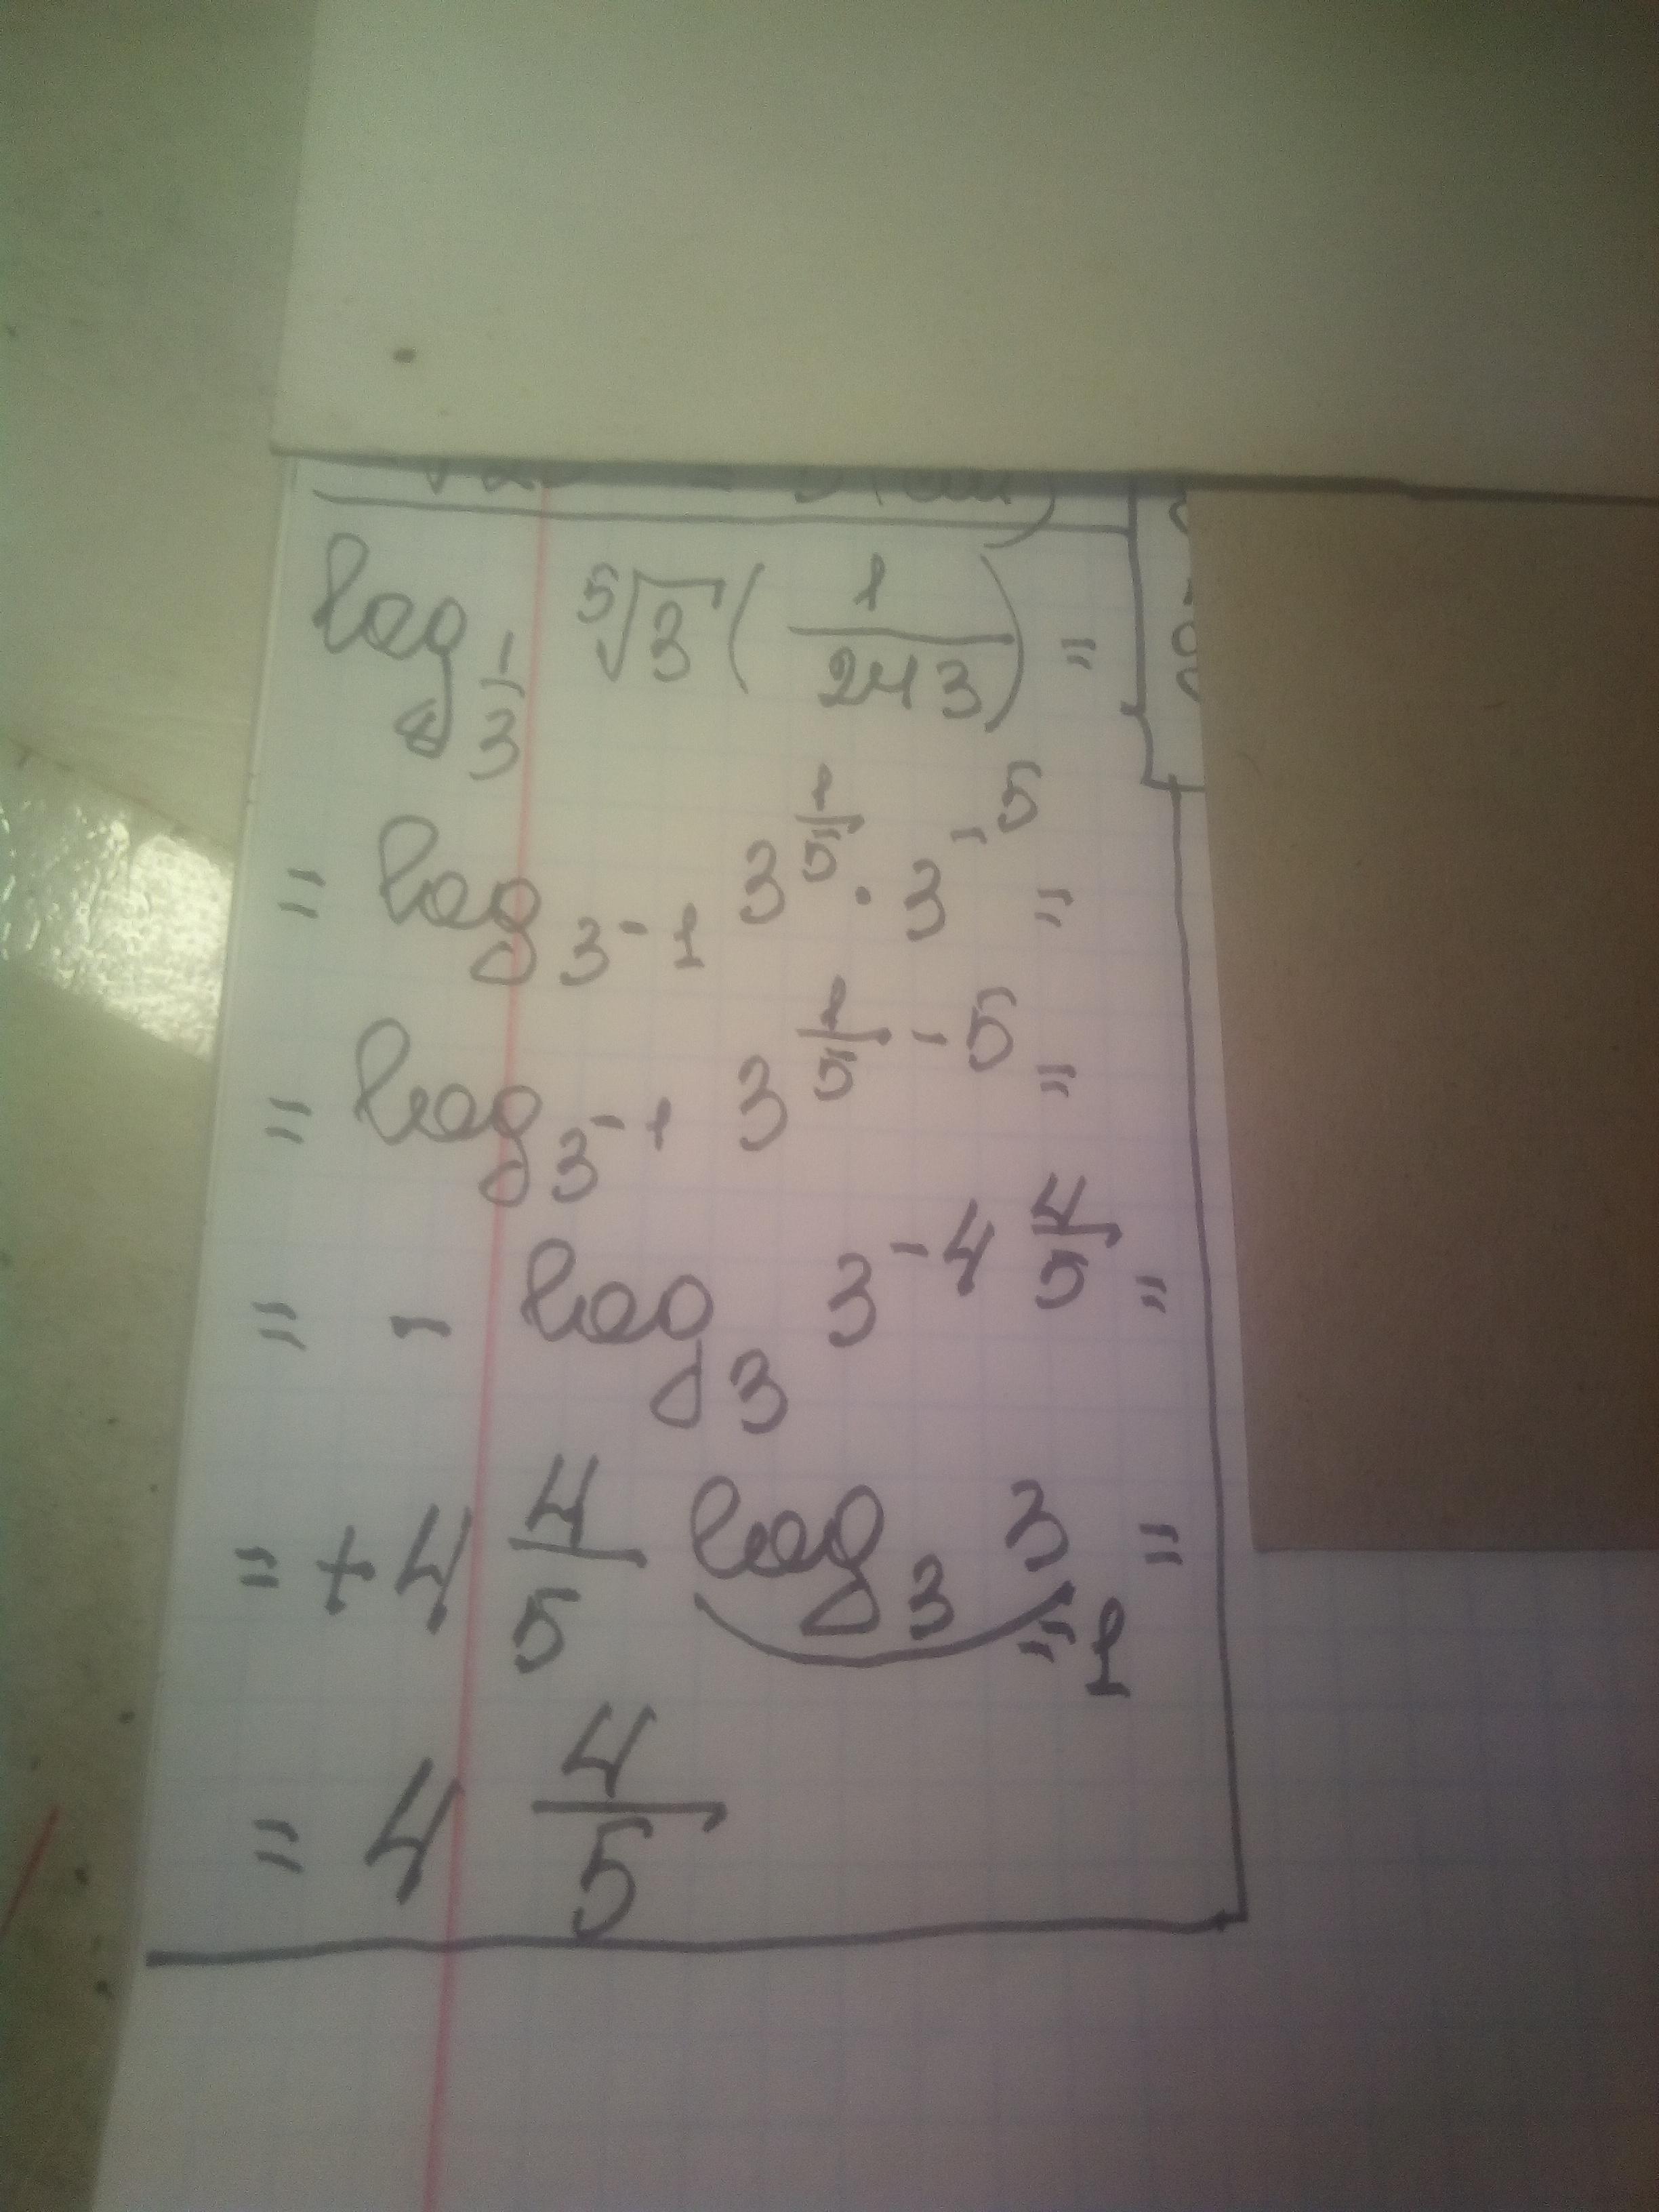 log_{1/3} ⁵√3 (1/243) =
= log_{3^{-1}} 3^{1/5} · 3^{-5} =
= log_{3^{-1}} 3^{1/5 - 5} =
= - log_3 3^{-4 4/5} =
= + 4 4/5 log_3 3 =
= 1
= 4 4/5